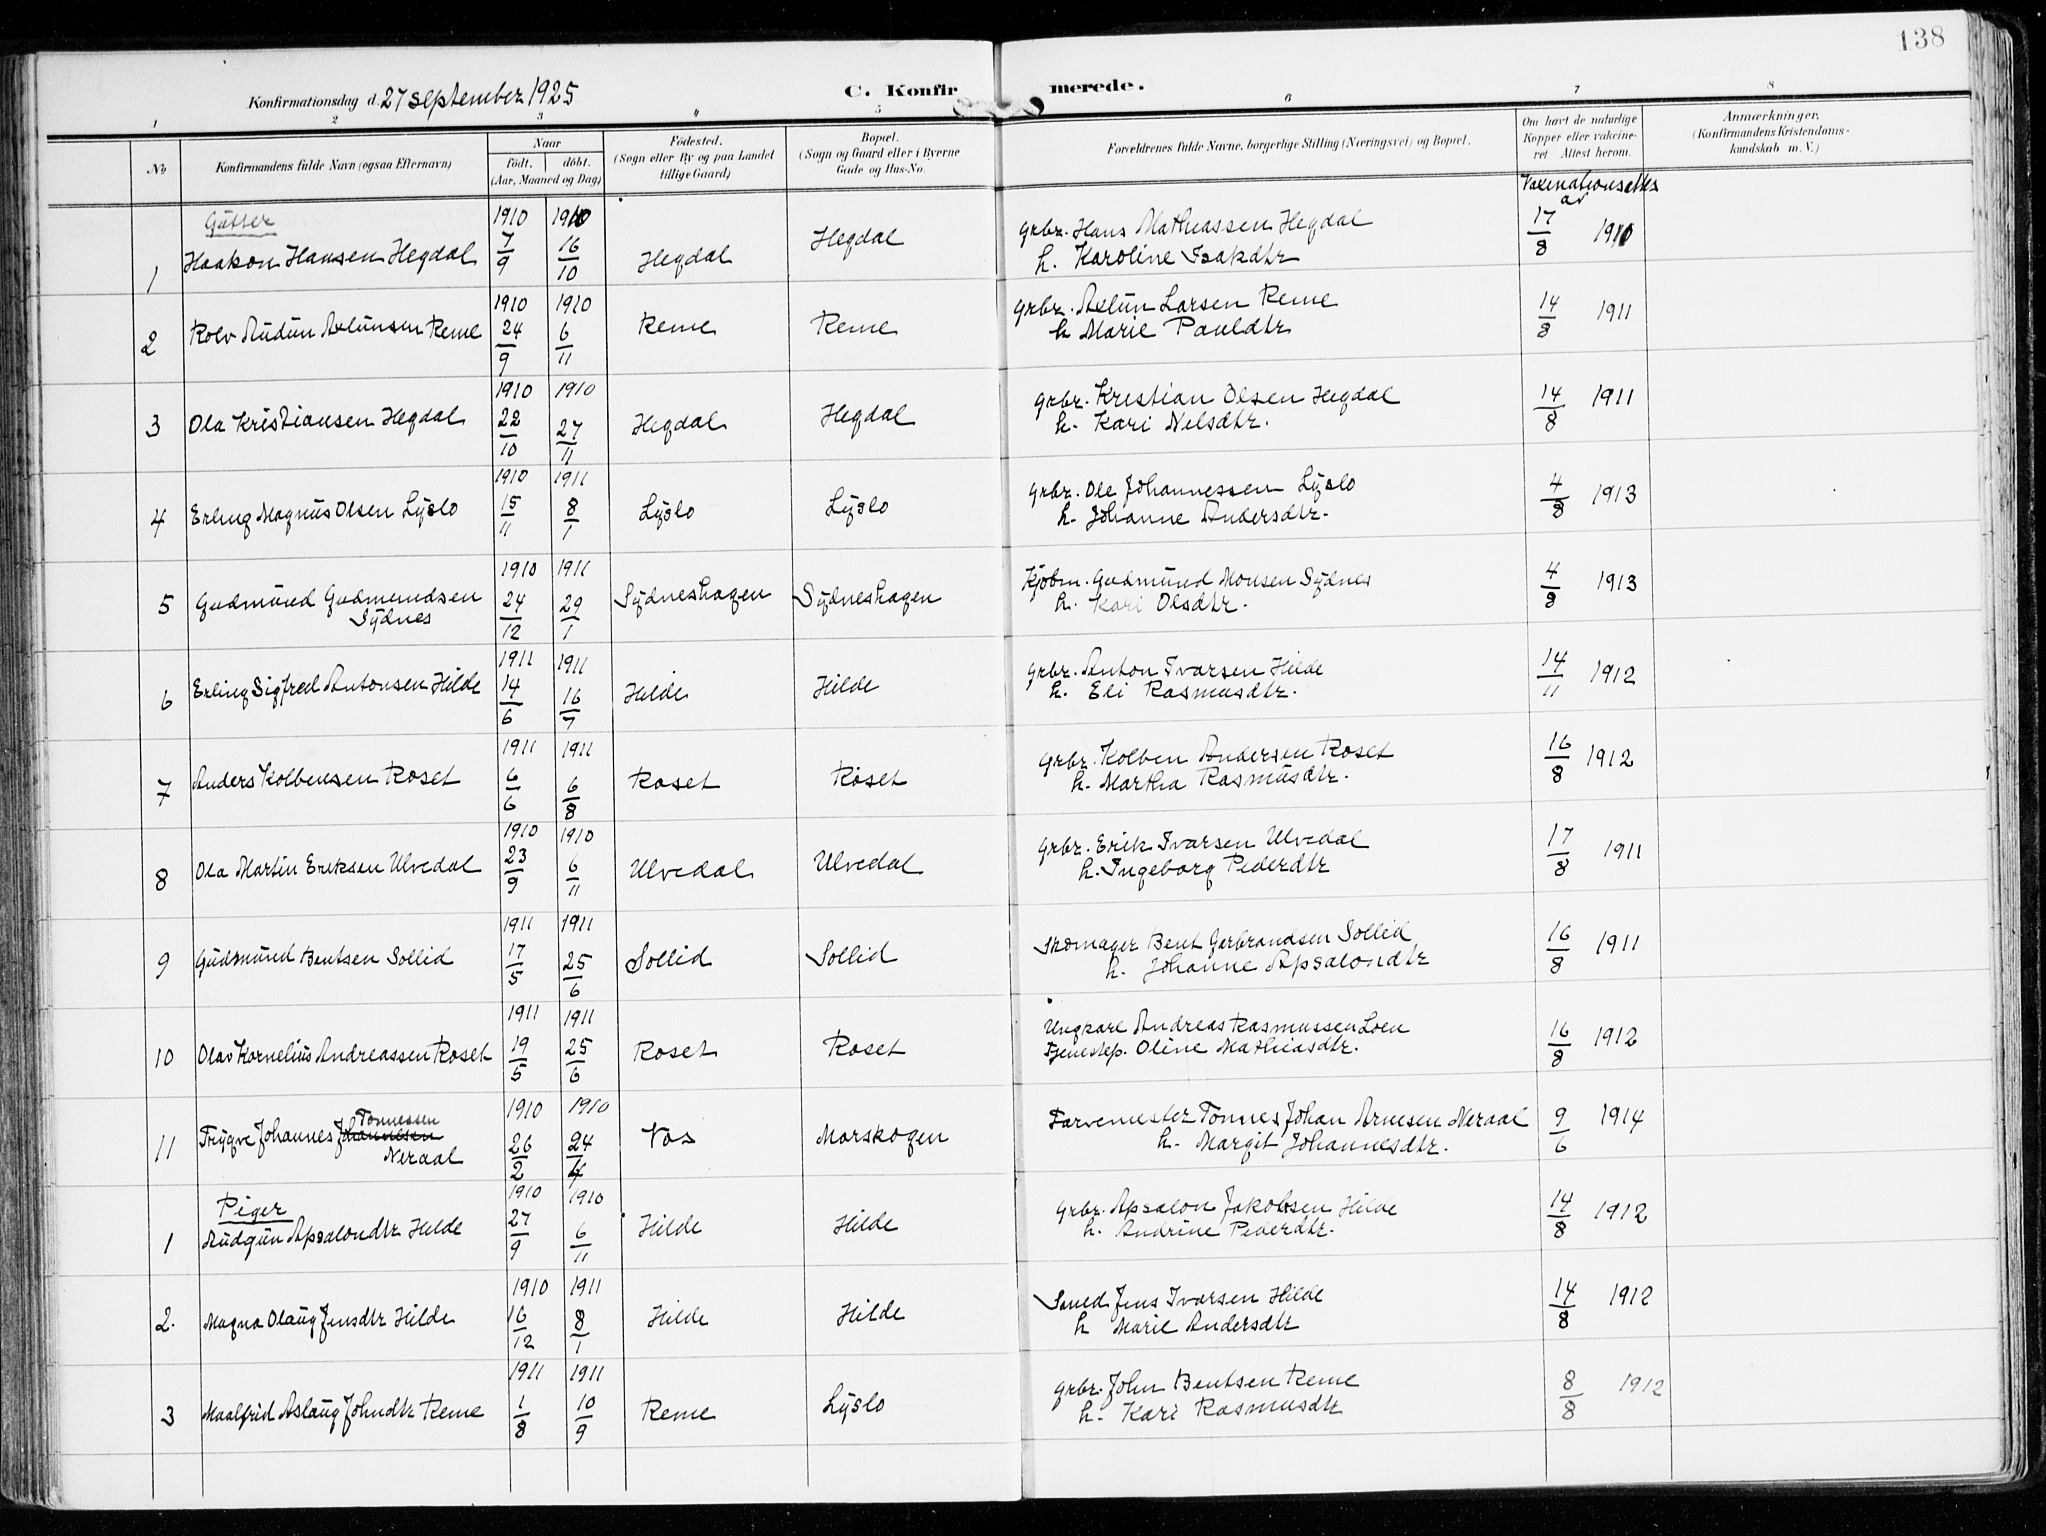 138
Konfirmationsdag d. 27 september 1925
C. Konfirmerede.
1 2 3 4 5 6 7 8
No
Konfirmandens fulde Navn (ogsaa Efternavn)
Naar
født. døbt.
(Aar, Maaned og Dag)
Fødested.
(Sogn eller By og paa Landet
tillige Gaard)
Bopæl.
(Sogn og Gaard eller i Byerne
Gade og Hus-No.
Forældrenes fulde Navne, borgerlige Stilling (Næringsvei) og Bopæl.
Om havt de naturlige
Kopper eller vakcine-
ret Attest herom.
Anmærkninger.
(Konfirmandens Kristendoms-
kundskab m. V.)
av
Gutter
1 Haakon Hansen Hegdal 1910 7/9 1910 16/10 Hegdal Hegdal grbr. Hans Mathiassen Hegdal 17/8 1910
h. Karoline Isakdtr
2 Rolv Audun Aslunsen Reme 1910 24/9 1910 6/11 Reme Reme grbr. Aslun Larsen Reme 14/8 1911
h Marie Pauldtr
3 Ola Kristiansen Hegdal 1910 22/10 1910 27/11 Hegdal Hegdal grbr. Kristian Olsen Hegdal 14/8 1911
h. Kari Nelsdtr.
4 Erling Magnus Olsen Lyslo 1910 15/11 1911 8/1 Lyslo Lyslo grbr. Ole Johannessen Lyslo 4/8 1913
h. Johanne Andersdtr.
5 Gudmund Gudmundsen 1910 24/12 1911 29/1 Sydneshagen Sydneshagen Kjøbm. Gudmund Monsen Sydnes 4/8 1913
Sydnes h. Kari Olsdtr.
6 Erling Sigfred Antonsen Hilde 1911 14/6 1911 16/7 Hilde Hilde grbr. Anton Ivarsen Hilde 14/11 1912
h. Eli Rasmusdtr.
7 Anders Kolbensen Roset 1911 6/6 1911 6/8 Roset Roset grbr. Kolben Andersen Roset 16/8 1912
h. Martha Rasmusdtr.
8 Ola Martin Eriksen Ulvedal 1910 23/9 1910 6/11 Ulvedal Ulvedal grbr. Erik Ivarsen Ulvedal 17/8 1911
h. Ingeborg Pederdtr
9 Gudmund Bentsen Sollid 1911 17/5 1911 25/6 Sollid Sollid Skomager Bent Gerbrandsen Sollid 16/8 1911
h. Johanne Apsalondtr
10 Olav Kornelius Andreassen Roset 1911 19/5 1911 25/6 Roset Roset Ungkarl Andreas Rasmussen Loen 16/8 1912
Tjenestep. Oline Mathiasdtr.
11 Trygve Johannes Johannesen Tønnessen 1910 26/2 1910 24/4 Vos Morskogen Farvemester Tønnes Johan Arnesen Neraal 9/6 1914
Neraal h. Margit Johannesdtr.
Piger
1 Audgun Apsalondtr Hilde 1910 27/9 1910 6/11 Hilde Hilde grbr. Apsalon Jakobsen Hilde 14/8 1912
h. Andrine Pederdtr.
2. Magna Olaug Jensdtr Hilde 1910 16/12 1911 8/1 Hilde Hilde Smed Jens Ivarsen Hilde 14/8 1912
h Marie Andersdtr
3 Maalfrid Aslaug Johndtr Reme 1911 1/8 1911 10/9 Reme Lyslo grbr. John Bentsen Reme 8/8 1912
h. Kari Rasmusdtr